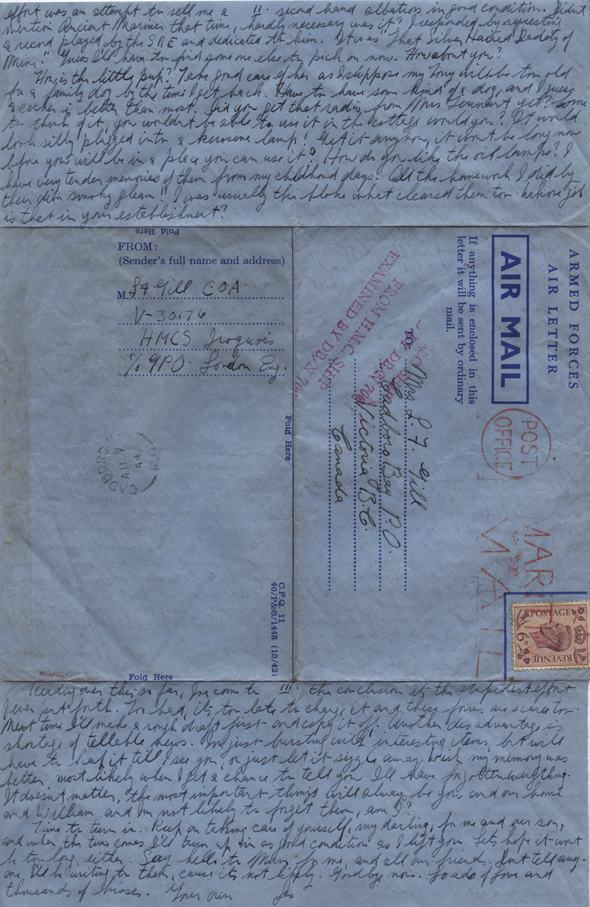 effort was an attempt to sell me a !! second hand albatross in good condition. Didn't
mention Ancient Mariner that time, hardly necessary was it? I responded by requesting
a record played by the SRE and dedicated to him. It was "That Silver Haired Daddy of
Mine". Guess I'll have to find someone else to pick on now. How about you?
How is the little pup? Take good care of her as I suppose my Tony will be too old
for a family dog by the time I get back. Have to have some kind of a dog, and I guess
a cocker is better than most. Did you get that radio from Mrs Tennant yet? Come
to think of it, you wouldn't be able to use it in the cottage would you? It would
look silly plugged into a kerosene lamp! Get it anyhow, it won't be long now
before you will be in a place you can use it. How do you like the oil lamps? I
have very tender memories of them from my childhood days. All the homework I did by
their dim smoky gleam!! I was usually the bloke what cleaned them too. Whose job
is that in your establishment?
Fold Here
FROM:
(Sender's full name and address)
M. L F Gill COA
V-30176
HMCS Iroquois
c/o GPO London Eng.
Fold Here
C.F.Q. 11
40/P.&S/1448 (10/42)
ARMED FORCES
AIR LETTER
AIR MAIL
If anything is enclosed in this
letter it will be sent by ordinary
mail.
FROM H.M.C. SHIP
EXAMINED BY DB/N 70
TO:
Mrs. L. F. Gill
Cadboro Bay P.O.
Victoria B.C.
Canada
POST
OFFICE
MAR
MAIL
POSTAGE
REVENUE
6D
Fold Here
Reading over this so far, I've come to !!! the conclusion it's the stupidest effort
I ever put forth. Too bad, it's too late to change it and these forms are scarce too.
Next time I'll make a rough draft first and copy it off. Another disadvantage is
shortage of tellable news. I'm just bursting with interesting items, but will
have to keep it till I see you, or just let it sizzle away. Wish my memory was
better, most likely when I get a chance to tell you I'll have forgotten everything.
It doesn't matter, the most important things will always be you and our home
and William and I'm not likely to forget them, am I?
Time to turn in. Keep on taking care of yourself, my darling, for me and our son,
and when the time comes I'll turn up in as good condition as I left you. Let's hope it won't
be too long, either. Say hello to Mum for me, and all our friends, don't tell any-
one I'll be writing to them, cause it's not likely. Goodbye now. Loads of love and
thousands of kisses. Your own Les